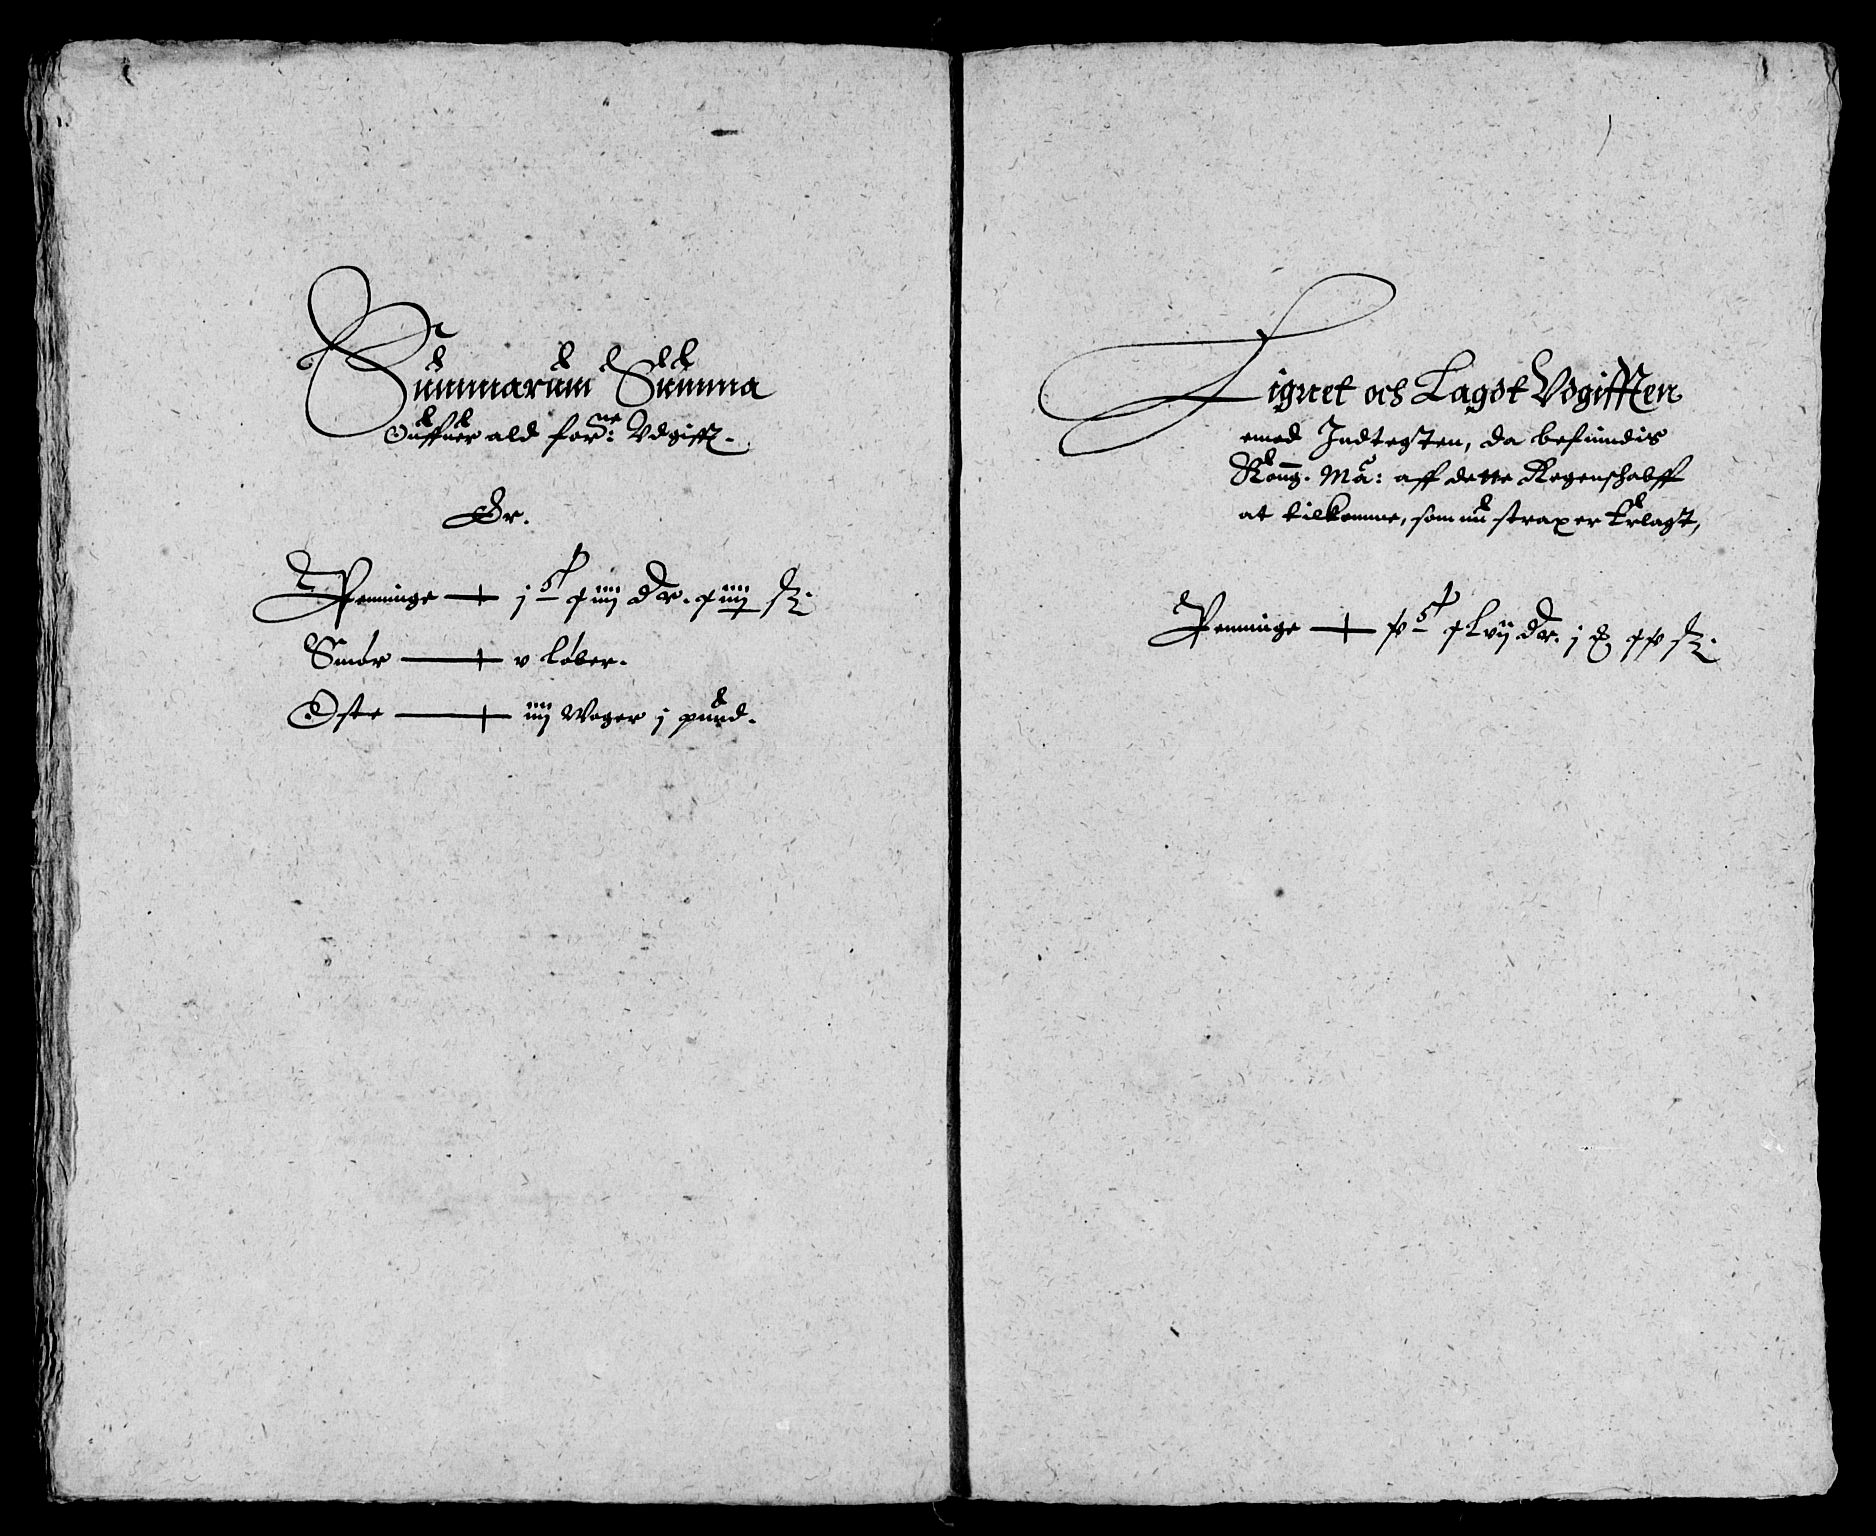 Summarum Summa
Offuer ald for:ne Vdgifft.
Er.
Penninge — j c iiij Dr. iiij ß.
Smør — v løber.
Oste — iiij Woger j pund.
Lignet och Lagdt Vdgifften
emod Indtegten, da befindis
Kong. Ma: aff dette Regenschabff
at tilkomme, som nu strax er Erlagt,
Penninge — lvij Dr. j ß.